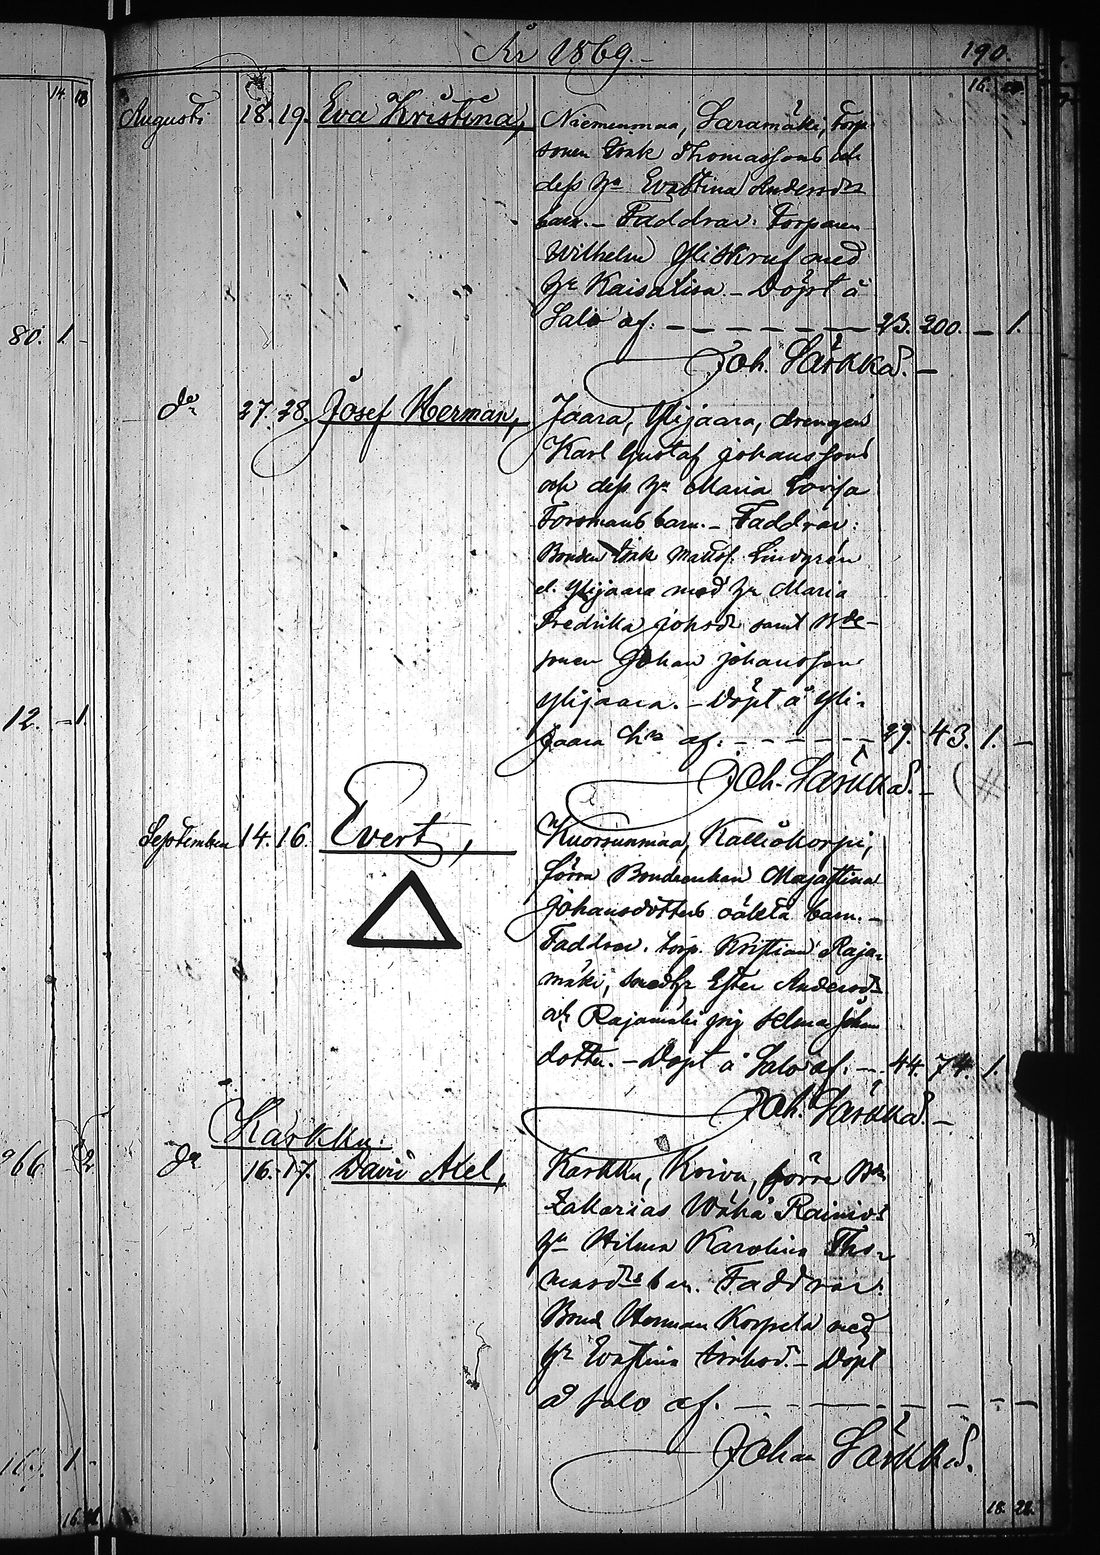 År 1869.
190.
14. 18
16.
Augusti 18. 19. Eva Kristina, Niemenmaa, Saramäki, torp-
sonen Isak Thomassons och
dess hu Evastina Andersdrs
barn. – Faddrar: Torparen
Wilhelm Yliskruf med
hr Kaisalisa. – Döpt å
Salo af: 23. 200. – 1.
Joh. Särkkä. –
80. 1 –
do 27. 28. Josef Herman, Jaara, Ylijaara, drengen
Karl Gustaf Johanssons
och dess hu Maria Lovisa
Forsmans barn. – Faddrar:
Bonden Isak Mattsf. Lindgrén
el. Ylijaara med hr Maria
Fredrika Johsdr samt Bde-
sonen Johan Johansson
Ylijaara. – Döpt å Yli-
Jaara af: 29. 43. 1. –
12. – 1.
Joh. Särkkä. –
September 14. 16. Evert, Kuorsunmaa, Kalliokorpi,
förra Bondeenkan Majastina
Johansdotters oäkta barn. –
Faddrar. torp. Kristian Raja-
mäki, smedhr Ester Andersdr
och Rajamäki pig Selma Johan
dotter. – Döpt å Salo af: – 44. 74. 1.
Joh. Särkkä. –
Karkku:
966. 2
do 16. 17. David Axel, Karkku, Koivu, förre Bn
Zakarias Wähä Rainios
hu Hilma Karolina Tho-
masdrs barn. Faddrar:
Bond Herman Korpela med
hr Evastina – Döpt
å Salo af.
Johan Särkkä.
163. 1 –
16. 18. 22.